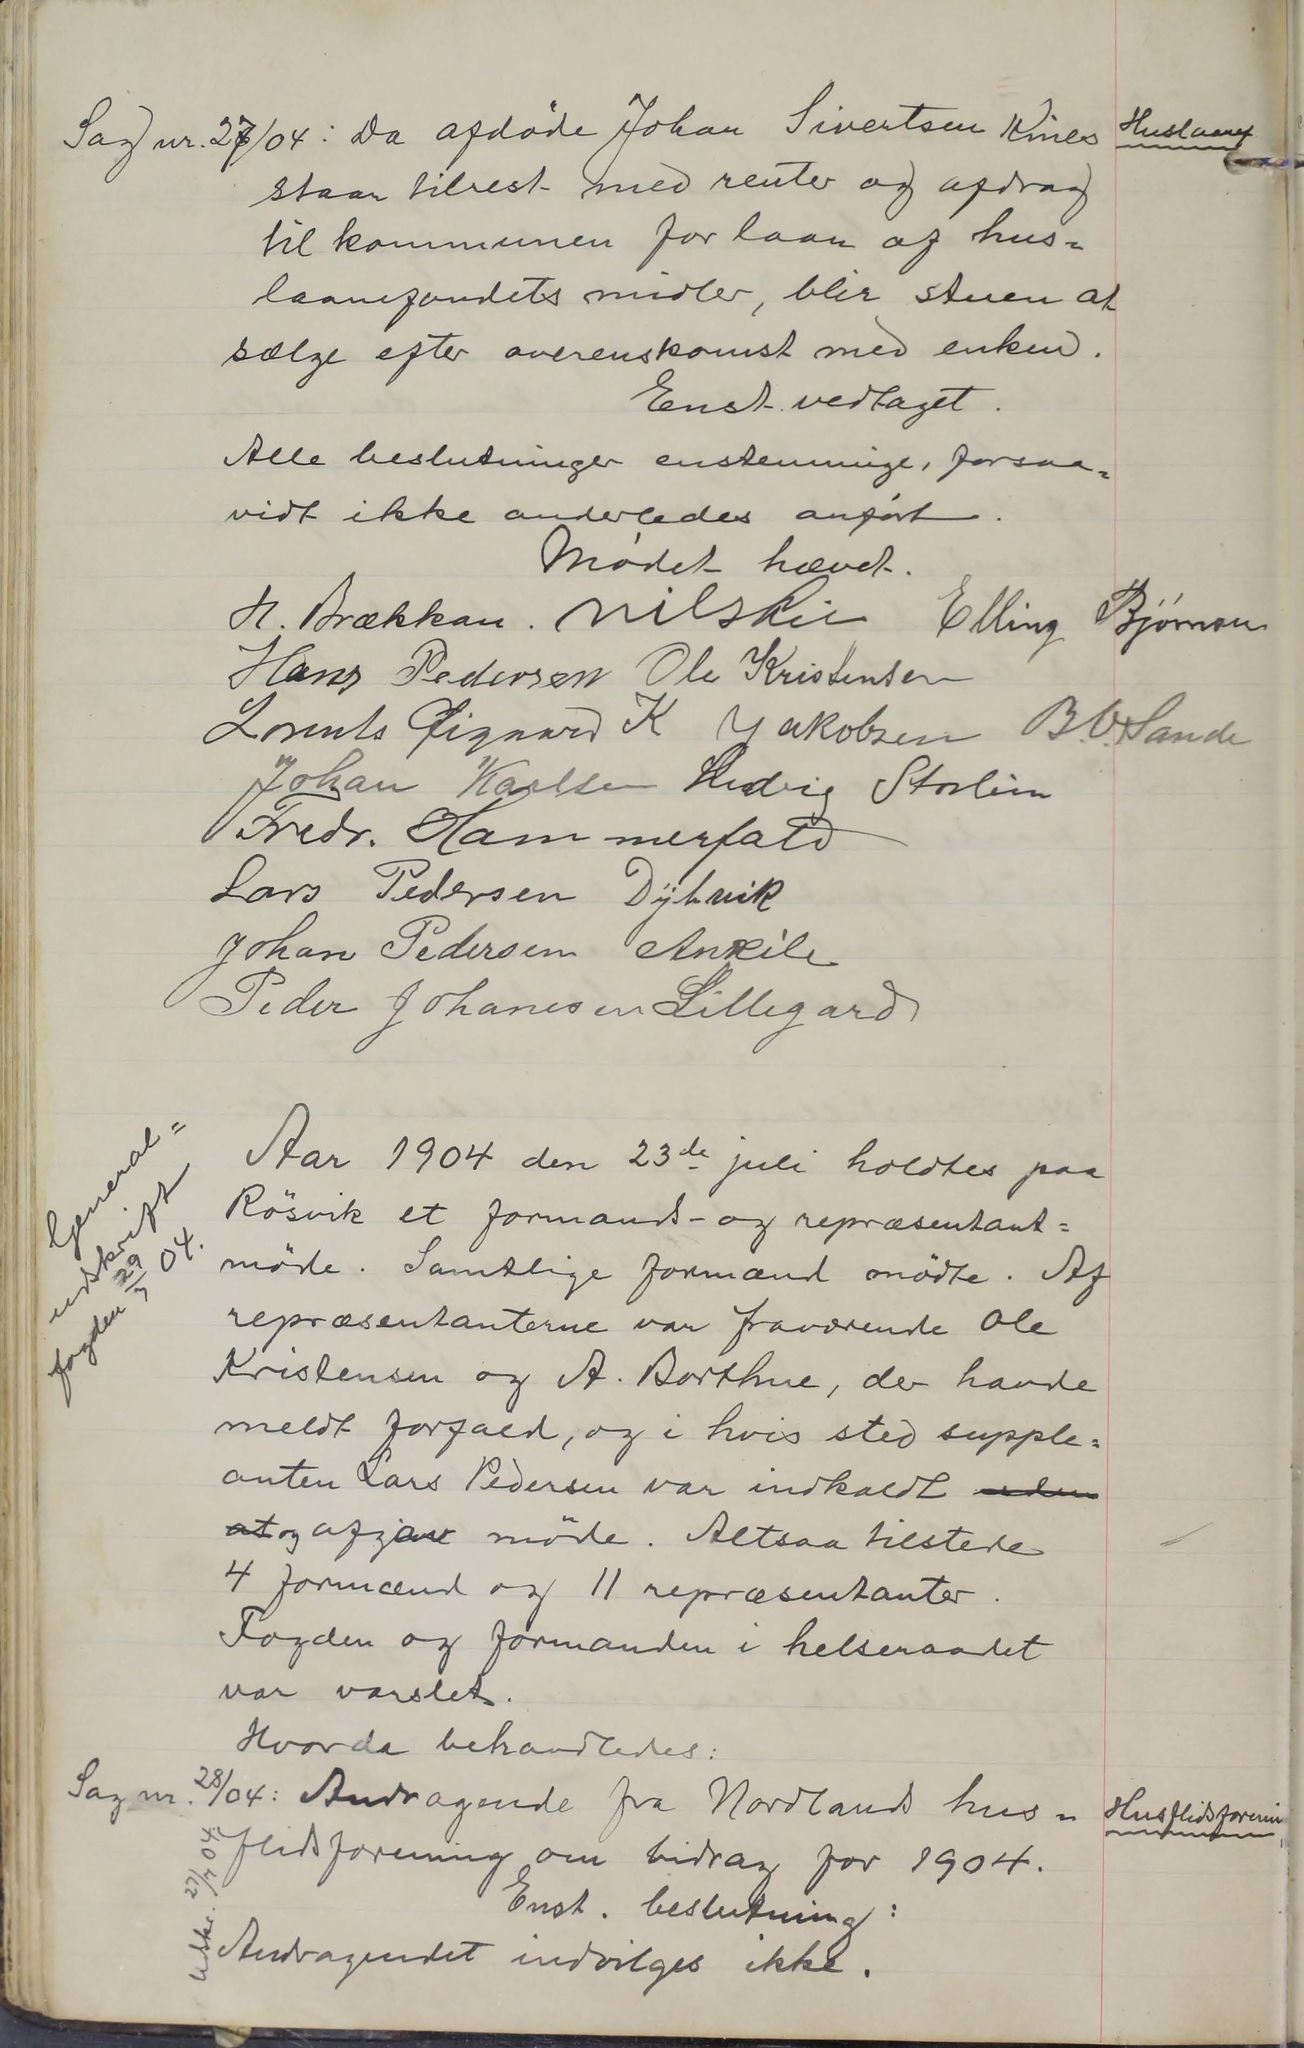 Sag nr. 27/04: Da afdøde Johan Sivertsen Kines
Huslaanef
staar tilrest med renter og afdrag
til kommunen for laan af hus-
laanefondets midler, blir stuen at
sælge efter overenskomst med enken.
Enst. vedtaget.
Alle beslutninger enstemmige, forsaa-
vidt ikke anderledes anført.
Mødet hævet.
H. Brækkan. Elling Bjørnsen
Hans Pedersen Ole Kristensen
Lorents K Jakobsen B. O. Sande
Johan Karlsen Hedvig Storlim
Fredr. Hammerfald
Lars Pedersen Djhvik
Johan Pedersen
Peder Johanesen Lillegard
General=
udskrift
fogden 29/7 04.
Aar 1904 den 23de juli holdtes paa
Rösvik et formands- og repræsentant=
möde. Samtlige formænd mödte. Af
repræsentanterne var fraværende Ole
Kristensen og A. Borthne, der havde
meldt forfald, og i hvis sted supple=
anten Lars Pedersen var indkaldt uden
at og afgav möde. Altsaa tilstede
4 formænd og 11 repræsentanter.
Fogden og formanden i helseraadet
var varslet.
Hvorda behandledes:
Sag nr. 28/04: Andragende fra Nordlands hus=
Husflidsforenin
flidsforening om bidrag for 1904.
Enst. beslutning:
Andragendet indvilges ikke.
Udskr. 27/7 04.